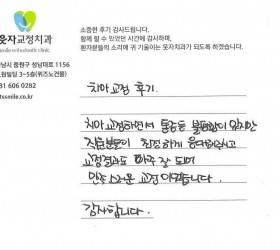 소중한 후기 감사드립니다.
함께 할 수 있었던 시간에 감사하며,
환자분들의 소리에 귀 기울이는 웃자치과가 되도록 하겠습니다.
웃자교정치과
smile orthodontic clinic
남시 중원구 성남대로 1156
빌딩 3~5층(위즈노건물)
31 606 0282
tssmile.co.kr
치아교정 후기.
치아교정하면서 불편함이 있지만
직원분들이 친절하게 응대해주시고
교정결과도 아주 잘 되어
만족스러운 교정이었습니다.
감사합니다.